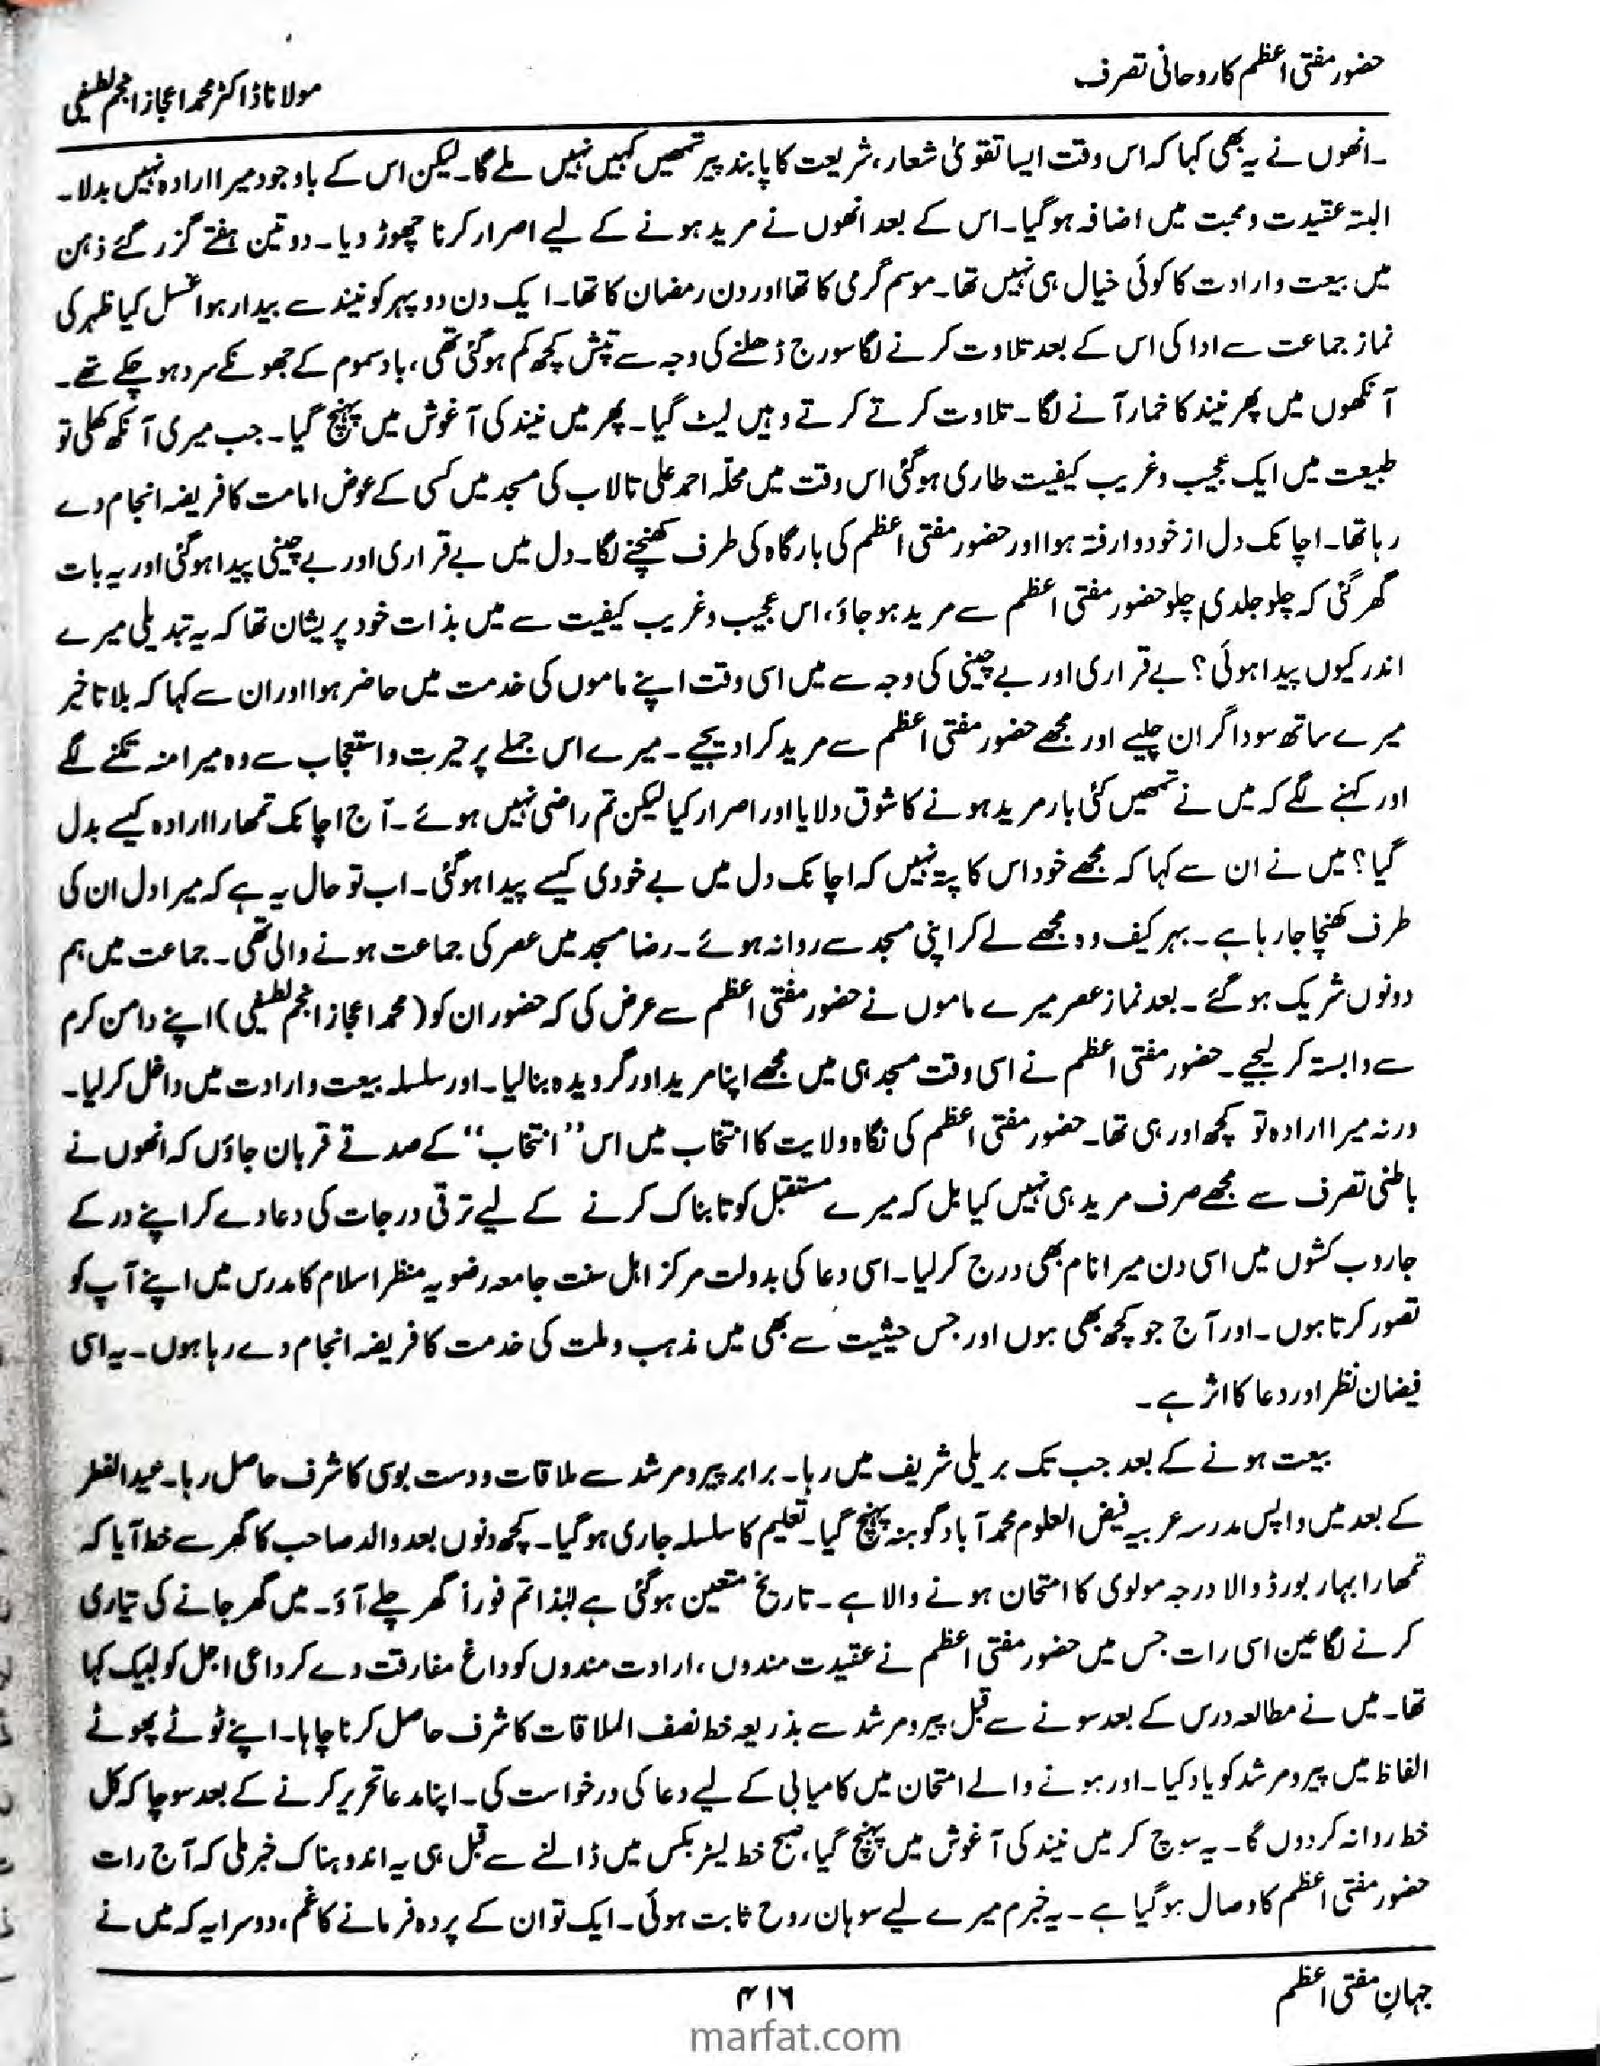 حضور مفتی اعظم کا روحانی تصرف
مولانا ڈاکٹر محمد اعجاز انجم لطیفی
۔انھوں نے یہ بھی کہا کہ اس وقت ایسا تقویٰ شعار، شریعت کا پابند پیر تمھیں کہیں نہیں ملے گا۔ لیکن اس کے باوجود میرا ارادہ نہیں بدلا۔
البتہ عقیدت و محبت میں اضافہ ہوگیا۔ اس کے بعد انھوں نے مرید ہونے کے لیے اصرار کرنا چھوڑ دیا۔ دو تین ہفتے گزر گئے ذہن
میں بیعت و ارادت کا کوئی خیال ہی نہیں تھا۔ موسم گرمی کا تھا اور دن رمضان کا تھا۔ ایک دن دوپہر کو نیند سے بیدار ہوا غسل کیا ظہر کی
نماز جماعت سے ادا کی اس کے بعد تلاوت کرنے لگا سورج ڈھلنے کی وجہ سے تپش کچھ کم ہوگئی تھی، باد سموم کے جھونکے سرد ہو چکے تھے۔
آنکھوں میں پھر نیند کا خمار آنے لگا۔ تلاوت کرتے کرتے وہیں لیٹ گیا۔ پھر میں نیند کی آغوش میں پہنچ گیا۔ جب میری آنکھ کھلی تو
طبیعت میں ایک عجیب و غریب کیفیت طاری ہوگئی اس وقت میں محلّہ احمد علی تالاب کی مسجد میں کسی کے عوض امامت کا فریضہ انجام دے
رہا تھا۔ اچانک دل از خود وارفتہ ہوا اور حضور مفتی اعظم کی بارگاہ کی طرف کھنچنے لگا۔ دل میں بے قراری اور بے چینی پیدا ہوگئی اور یہ بات
گھر گئی کہ چلو جلدی چلو حضور مفتی اعظم سے مرید ہو جاؤ، اس عجیب و غریب کیفیت سے میں بذات خود پریشان تھا کہ یہ تبدیلی میرے
اندر کیوں پیدا ہوئی؟ بے قراری اور بے چینی کی وجہ سے میں اسی وقت اپنے ماموں کی خدمت میں حاضر ہوا اور ان سے کہا کہ بلا تاخیر
میرے ساتھ سوداگران چلیے اور مجھے حضور مفتی اعظم سے مرید کرا دیجیے۔ میرے اس جملے پر حیرت و استعجاب سے وہ میرا منہ تکنے لگے
اور کہنے لگے کہ میں نے تمھیں کئی بار مرید ہونے کا شوق دلایا اور اصرار کیا لیکن تم راضی نہیں ہوئے۔ آج اچانک تمھارا ارادہ کیسے بدل
گیا؟ میں نے ان سے کہا کہ مجھے خود اس کا پتہ نہیں کہ اچانک دل میں بے خودی کیسے پیدا ہوگئی۔ اب تو حال یہ ہے کہ میرا دل ان کی
طرف کھنچا جا رہا ہے۔ بہر کیف وہ مجھے لے کر اپنی مسجد سے روانہ ہوئے۔ رضا مسجد میں عصر کی جماعت ہونے والی تھی۔ جماعت میں ہم
دونوں شریک ہو گئے۔ بعد نماز عصر میرے ماموں نے حضور مفتی اعظم سے عرض کی کہ حضور ان کو (محمد اعجاز انجم لطیفی) اپنے دامن کرم
سے وابستہ کر لیجیے۔ حضور مفتی اعظم نے اسی وقت مسجد ہی میں مجھے اپنا مرید اور گرویدہ بنا لیا۔ اور سلسلہ بیعت و ارادت میں داخل کر لیا۔
ورنہ میرا ارادہ تو کچھ اور ہی تھا۔ حضور مفتی اعظم کی نگاہ ولایت کا انتخاب میں اس ”انتخاب“ کے صدقے قربان جاؤں کہ انھوں نے
باطنی تصرف سے مجھے صرف مرید ہی نہیں کیا بل کہ میرے مستقبل کو تابناک کرنے کے لیے ترقی درجات کی دعا دے کر اپنے در کے
جاروب کشوں میں اسی دن میرا نام بھی درج کر لیا۔ اسی دعا کی بدولت مرکز اہل سنت جامعہ رضویہ منظر اسلام کا مدرس میں اپنے آپ کو
تصور کرتا ہوں۔ اور آج جو کچھ بھی ہوں اور جس حیثیت سے بھی میں مذہب و ملت کی خدمت کا فریضہ انجام دے رہا ہوں۔ یہ اسی
فیضان نظر اور دعا کا اثر ہے۔
بیعت ہونے کے بعد جب تک بریلی شریف میں رہا۔ برابر پیر و مرشد سے ملاقات و دست بوسی کا شرف حاصل رہا۔ عید الفطر
کے بعد میں واپس مدرسہ عربیہ فیض العلوم محمد آباد گوہنہ پہنچ گیا۔ تعلیم کا سلسلہ جاری ہوگیا۔ کچھ دنوں بعد والد صاحب کا گھر سے خط آیا کہ
تمھارا بہار بورڈ والا درجہ مولوی کا امتحان ہونے والا ہے۔ تاریخ متعین ہوگئی ہے لہٰذا تم فوراً گھر چلے آؤ۔ میں گھر جانے کی تیاری
کرنے لگا عین اسی رات جس میں حضور مفتی اعظم نے عقیدت مندوں، ارادت مندوں کو داغ مفارقت دے کر داعی اجل کو لبیک کہا
تھا۔ میں نے مطالعہ درس کے بعد سونے سے قبل پیر و مرشد سے بذریعہ خط نصف الملاقات کا شرف حاصل کرنا چاہا۔ اپنے ٹوٹے پھوٹے
الفاظ میں پیر و مرشد کو یاد کیا۔ اور ہونے والے امتحان میں کامیابی کے لیے دعا کی درخواست کی۔ اپنا مدعا تحریر کرنے کے بعد سوچا کہ کل
خط روانہ کر دوں گا۔ یہ سوچ کر میں نیند کی آغوش میں پہنچ گیا، صبح خط لیٹر بکس میں ڈالنے سے قبل ہی یہ اندوہناک خبر ملی کہ آج رات
حضور مفتی اعظم کا وصال ہو گیا ہے۔ یہ خبرم میرے لیے سوہان روح ثابت ہوئی۔ ایک تو ان کے پردہ فرمانے کا غم، دوسرا یہ کہ میں نے
جہانِ مفتی اعظم
۴۱۶
marfat.com